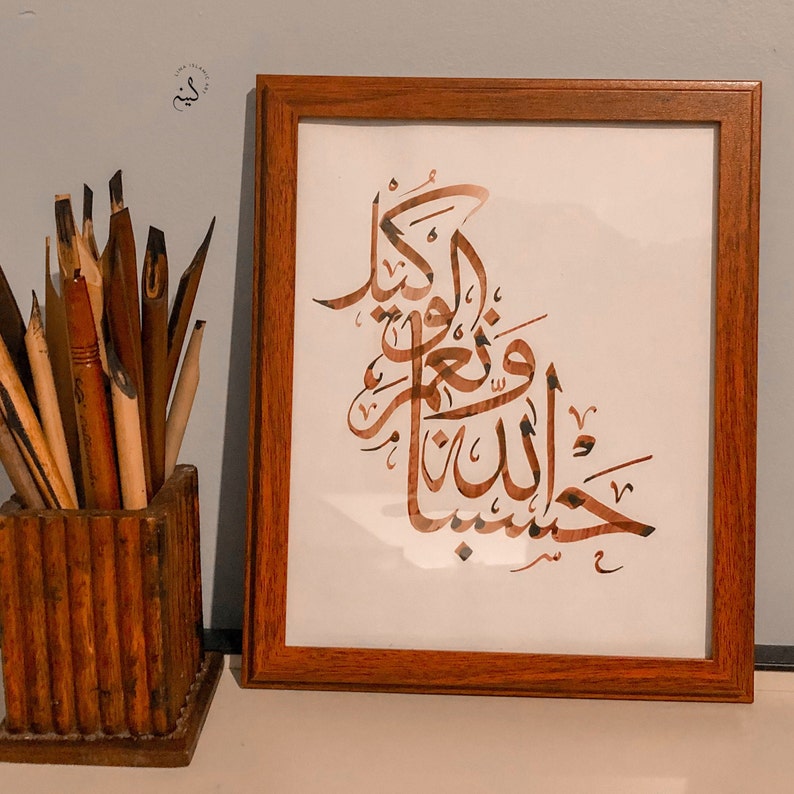 LINA ISLAMIC ART
لينة
حسبنا الله
ونعم
الوكيل